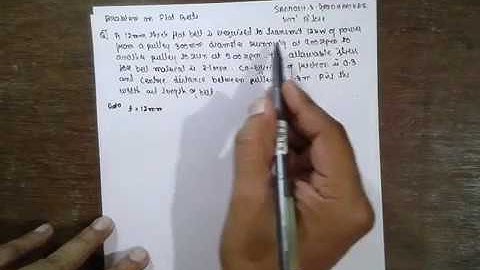 Problem on Flat Belt
Q] A 12mm thick flat belt is required to transmit 12kW of power
from a pulley 300mm diameter running at rpm to
another pulley to run at 500rpm. allowable stress
for belt material is 2.1mm. Co-eff of friction is 0.3
and centre distance between pulley 3m Find the
width and length of belt.
t = 12mm